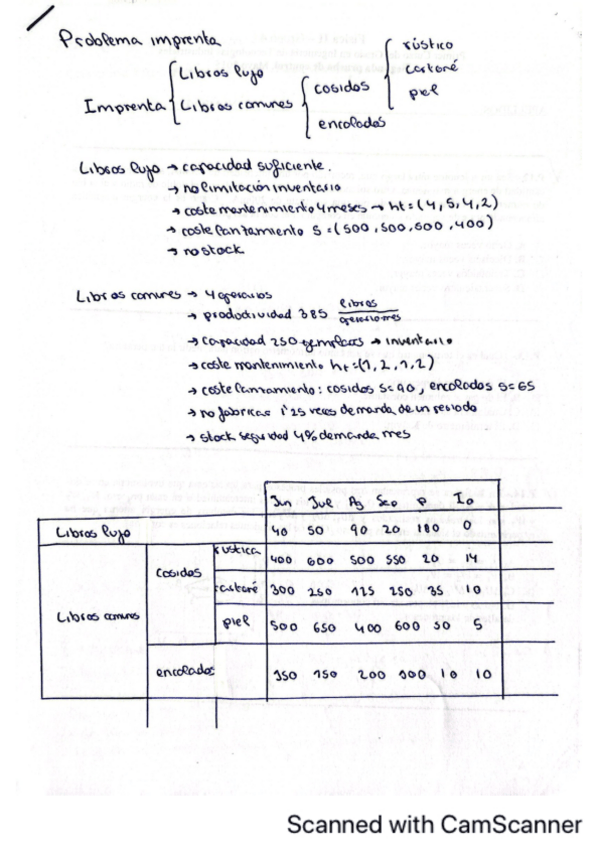 Problema imprenta
Imprenta
Libros lujo
Libros comunes
cosidos
encolados
rústico
cartoné
piel
Libros lujo → capacidad suficiente.
→ no limitación inventario
→ coste mantenimiento 4 meses → ht = (4, 5, 4, 2)
→ coste lanzamiento S = (500, 500, 500, 400)
→ no stock
Libros comunes → 4 operarios
→ productividad 385 libros / operario mes
→ capacidad 250 ejemplares → inventario
→ coste mantenimiento ht = (1, 2, 1, 2)
→ coste lanzamiento: cosidos S = 90, encolados S = 65
→ no fabricar 1'25 veces demanda de un periodo
→ stock seguridad 4% demanda mes
Jun Jul Ag Sep P Io
Libros lujo 40 50 90 20 180 0
Libros comunes
cosidos
rustica 400 600 500 550 20 14
cartoné 300 250 125 250 35 10
piel 500 650 400 600 50 5
encolados 350 150 200 300 10 10
Scanned with CamScanner